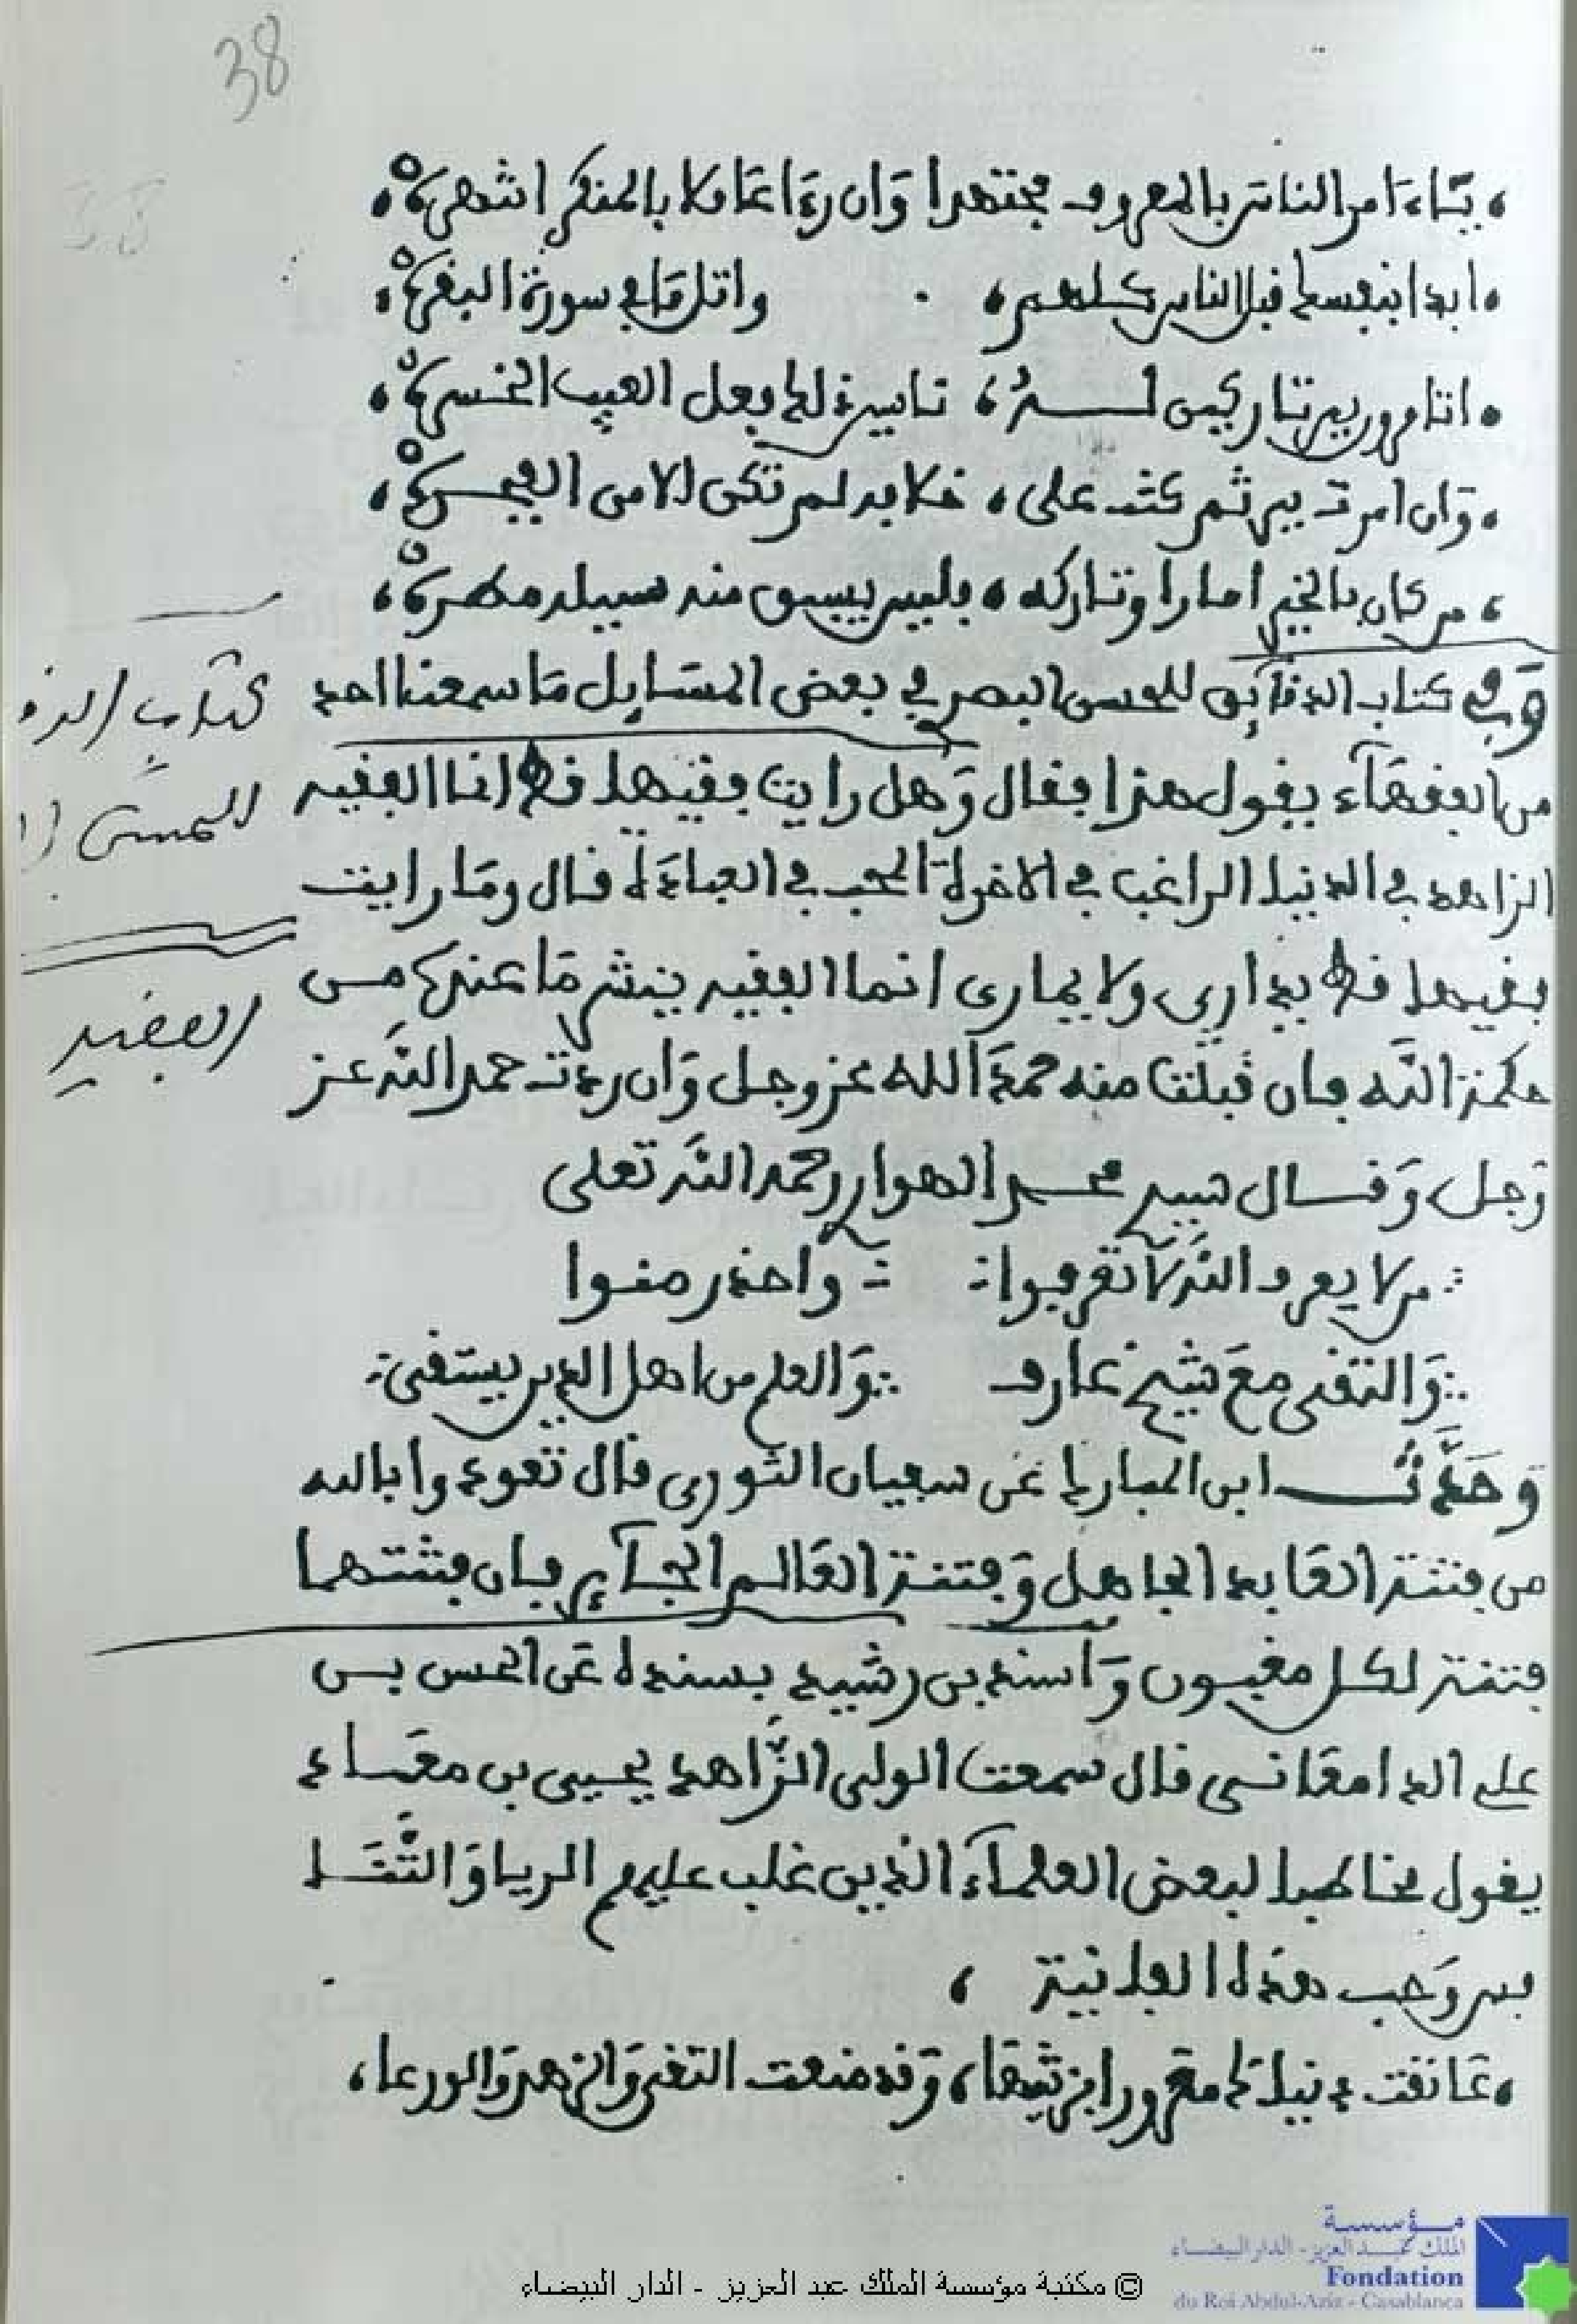 38
، يا ءامر الناس بالمعروف مجتهدا وان رءا عاملا بالمنكر انتهره،
، ابدا بنفسك قبل الناس كلهم ، واتل ما في سورة البقره،
، اتامرون ببر تاركين له ، ناسين ذلك فعل العيب الخسره ،
، وان امرت ببر ثم كنت على ، خلافه لم تكن الا من الفجره ،
، من كان بالخير امارا وتاركه ، فليس يسبق منه سيله مطره ،
وفي كتاب الدقايق للحسن البصري في بعض المسايل ما سمعنا احد
من الفقهاء يقول هذا فقال وهل رايت فقيها قط انما الفقيه
الزاهد في الدنيا الراغب في الاخرة المحب في العبادة قال وما رايت
فقيها قط يداري ولا يماري انما الفقيه ينشر ما عنده من
حكمة الله فان قبلت منه حمد الله عز وجل وان ردت حمد الله عز
وجل وقال سيدي محمد الهواري رحمه الله تعلى
من لا يعرف الله لا تقربوا واحذر منوا
والتقى مع شيخ عارف والعلم من اهل الدين يستقى
وحدث ابن المبارك عن سفيان الثوري قال تعوذوا بالله
من فتنة العابد الجاهل وفتنة العالم الجآير فان فتنتهما
فتنة لكل مفتون واسند بن رشيد بسنده عن الحسن بن
علي الدامغاني قال سمعت الولي الزاهد يحيى بن معاذ
يقول مخاطبا لبعض العلمآء الذين غلب عليهم الريا والثنا
من وحب هذه الفانية ،
، عانقت دنياك مغرورا بزينتها ، وقد منعت التقى والزهد والورعا ،
كتاب الد
للحسن ا
الفقيه
© مكتبة مؤسسة الملك عبد العزيز - الدار البيضاء
مؤسسة
الملك عبد العزيز - الدار البيضاء
Fondation
du Roi Abdul-Aziz - Casablanca